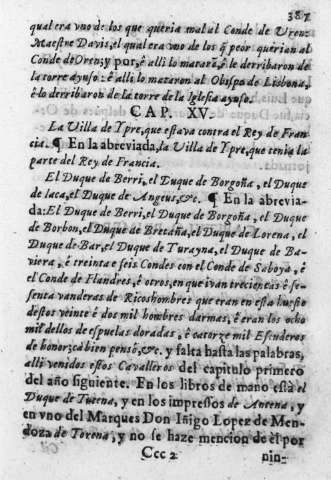 387
qual era vno de los que queria mal al Conde de Oren:
Maestre Davis, el qual era vno de los q̃ peor querian al
Conde de Oren; y por, è alli lo matarõ, è le derribaron de
la torre ayuso: è alli lo mataron al Obispo de Lisbona,
è lo derribaron de la torre de la Iglesia ayuso.
CAP. XV.
La Villa de Ypre, que estava contra el Rey de Fran-
cia. ¶ En la abreviada, la Villa de Ypre, que tenia la
parte del Rey de Francia.
El Duque de Berri, el Duque de Borgoña, el Duque
de laca, el Duque de Angeus, &c. ¶ En la abrevia-
da: El Duque de Berri, el Duque de Borgoña, el Duque
de Borbon, el Duque de Bretaña, el Duque de Lorena, el
Duque de Bar, el Duque de Turayna, el Duque de Ba-
viera, è treinta è seis Condes con el Conde de Saboya, è
el Conde de Flandres, è otros, en que ivan trecientas è se-
senta vanderas de Ricoshombres que eran en esta hueste
destos veinte è dos mil hombres darmas, è eran los ocho
mil dellos de espuelas doradas, è catorze mil Escuderos
de honor; cà bien pensò, &c. y falta hasta las palabras,
alli venidos estos Cavalleros del capitulo primero
del año siguiente. En los libros de mano està el
Duque de Turena, y en los impressos de Antena, y
en vno del Marques Don Iñigo Lopez de Men-
doza de Torena, y no se haze mencion de èl por
Ccc 2
nin-